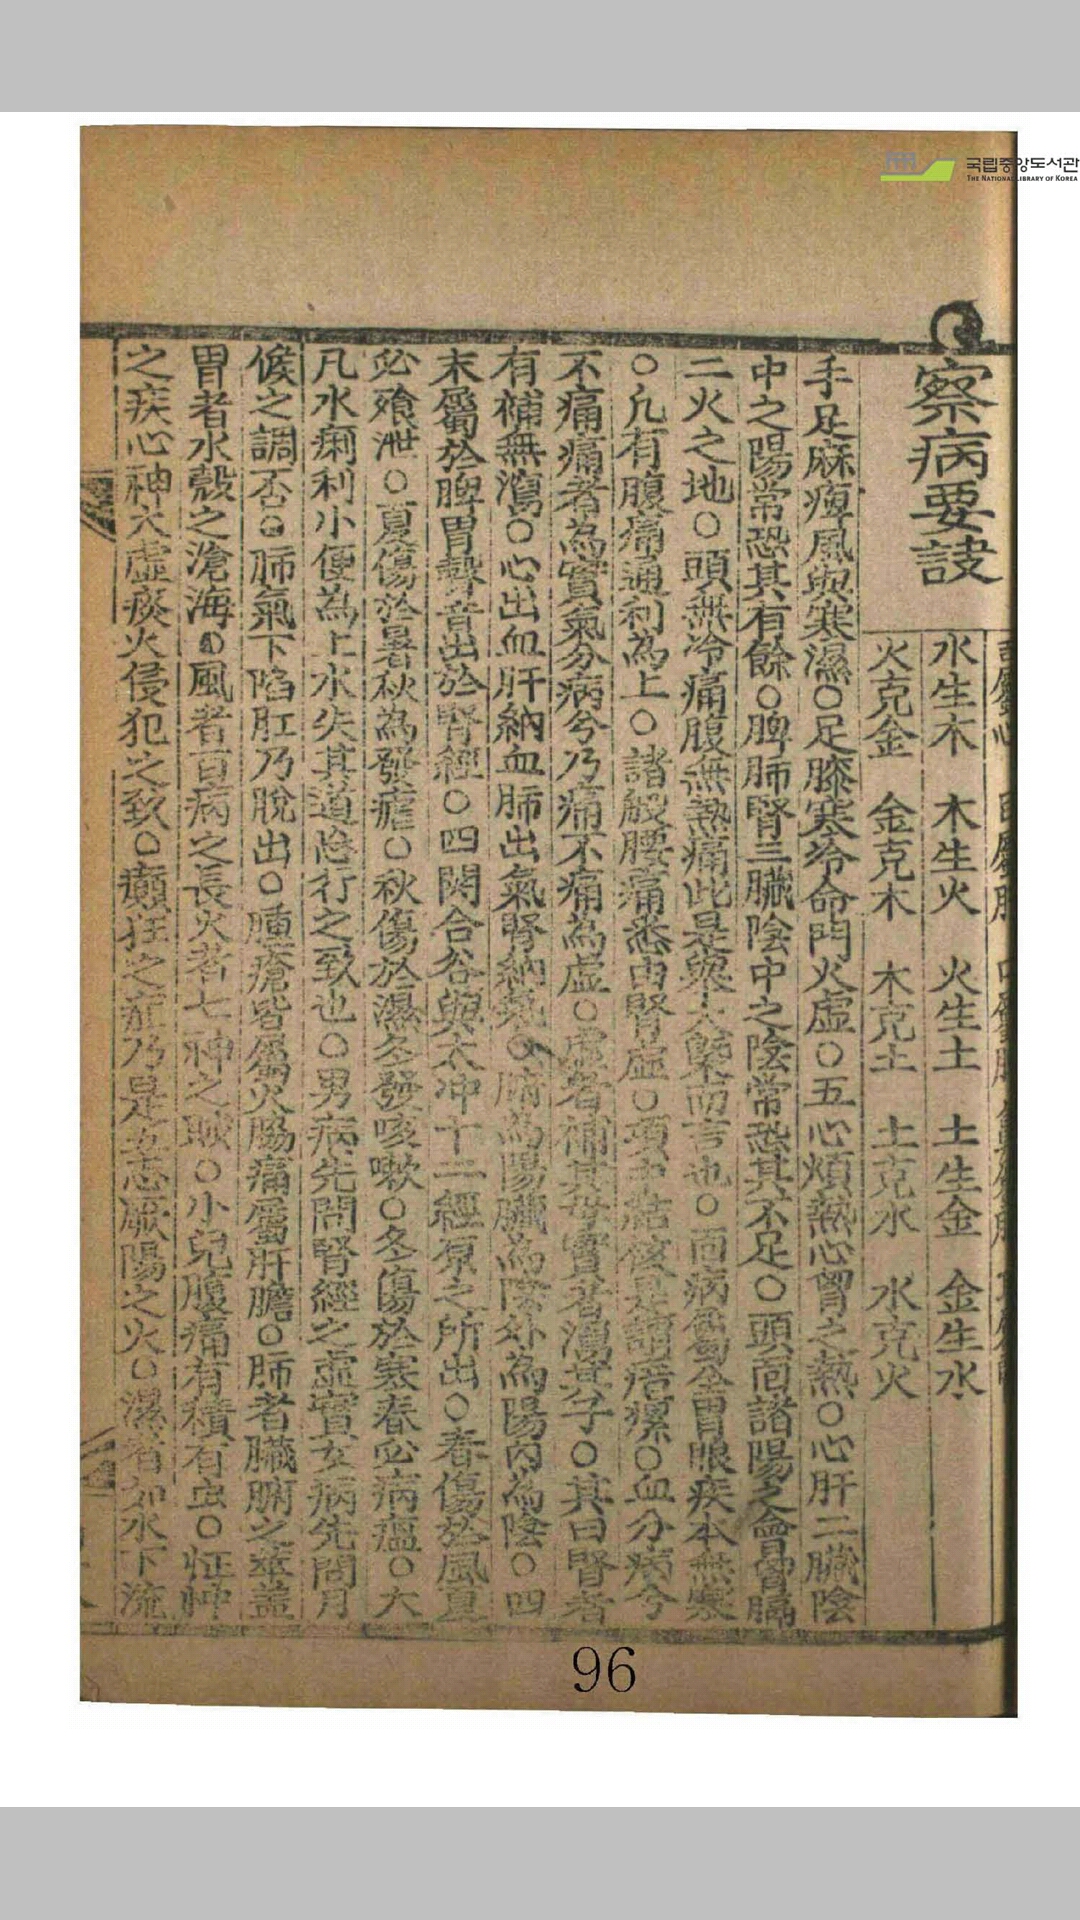 국립중앙도서관
THE NATIONAL LIBRARY OF KOREA
察病要訣
水生木 木生火 火生土 土生金 金生水
火克金 金克木 木克土 土克水 水克火
手足麻痺風與寒濕○足膝寒冷命門火虛○五心煩熱心胃之熱○心肝二臟陰
中之陽常恐其有餘○脾肺腎三臟陰中之陰常恐其不足○頭面諸陽之會胷膈
二火之地○頭無冷痛腹無熱痛此是擧大槩而言也○面病屬全胃眼疾本無寒
○凡有腹痛通利為上○諸般腰痛悉由腎虛○項中結核是謂瘖瘰○血分病兮
不痛痛者為實氣分病兮乃痛不痛為虛○虛者補其母實者瀉其子○其曰腎者
有補無瀉○心出血肝納血肺出氣腎納氣○腑為陽臟為陰外為陽內為陰○四
末屬於脾胃聲音出於腎經○四関合谷與太冲十二經原之所出○春傷於風夏
必飧泄○夏傷於暑秋為發瘧○秋傷於濕冬發咳嗽○冬傷於寒春必病瘟○大
凡水痢利小便為上水失其道忩行之致也○男病先問腎經之虛實女病先問月
候之調否○肺氣下陷肛乃脫出○腫瘡皆屬火脇痛屬肝膽○肺者臟腑之華盖
胃者水穀之滄海○風者百病之長火者七神之賊○小兒腹痛有積有虫○怔忡
之疾心神大虛痰火侵犯之致○癲狂之症乃是五志厥陽之火○濕者如水下流
96